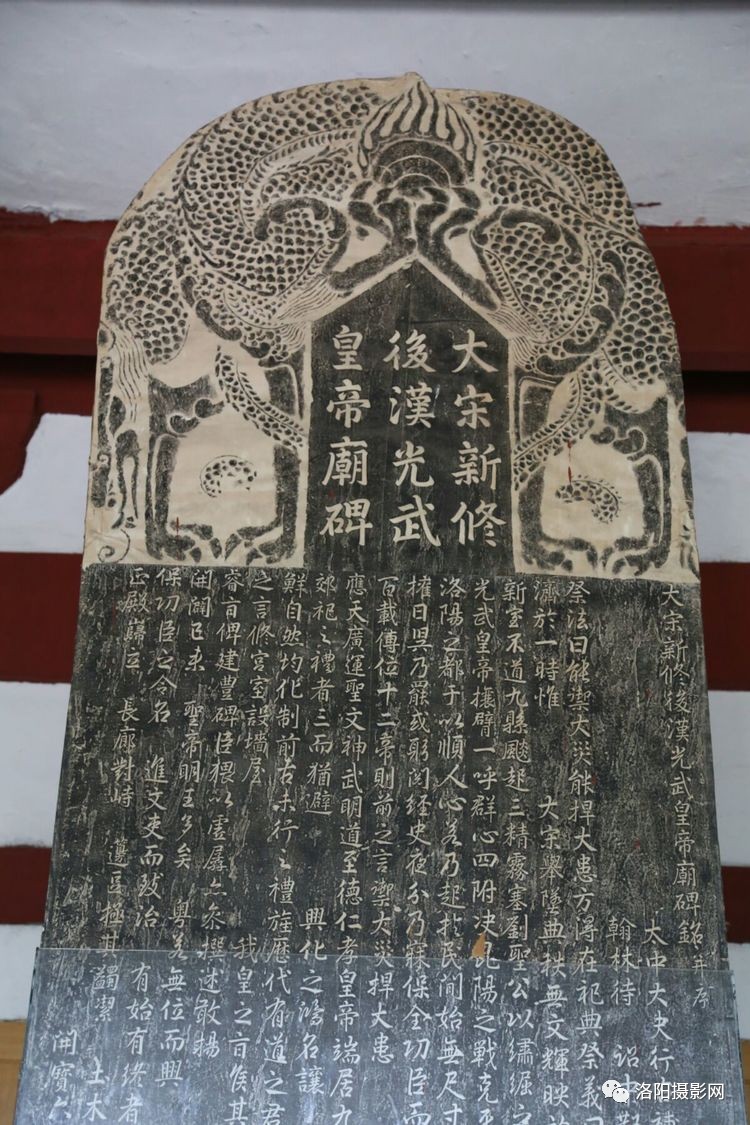 大宋新修
後漢光武
皇帝廟碑
大宋新修後漢光武皇帝廟碑銘并序
太中大夫行
翰林待詔
祭法曰能禦大災能捍大患方得在祀典祭義曰
濟於一時惟 大宋舉墜典秩無文輝映
新室不道九縣飈起三精霧塞劉聖公以繡裾之
光武皇帝攘臂一呼群心四附決昆陽之戰克平
洛陽之都于以順人心若乃起於民間始無尺寸
權日昃乃罷或躬閱經史夜分乃寐保全功臣而
百載傳位十二帝則前之言禦大災捍大患
應天廣運聖文神武明道至德仁孝皇帝端居九
郊祀之禮者三而猶避 興化之鴻名讓
鮮自然均化制前古未行之禮旌歷代有道之君
之言修宮室設墻屋 我皇之旨俟其
睿旨俾建豊碑臣猥以虛孱亦忝撰述敢揚
開闢已来 聖帝明王多矣 粤若無位而興
保功臣之令名 進文吏而致治 有始有緒者
正殿巋立 長廊對峙 籩豆極其蠲潔 土木
開寶六
洛阳摄影网